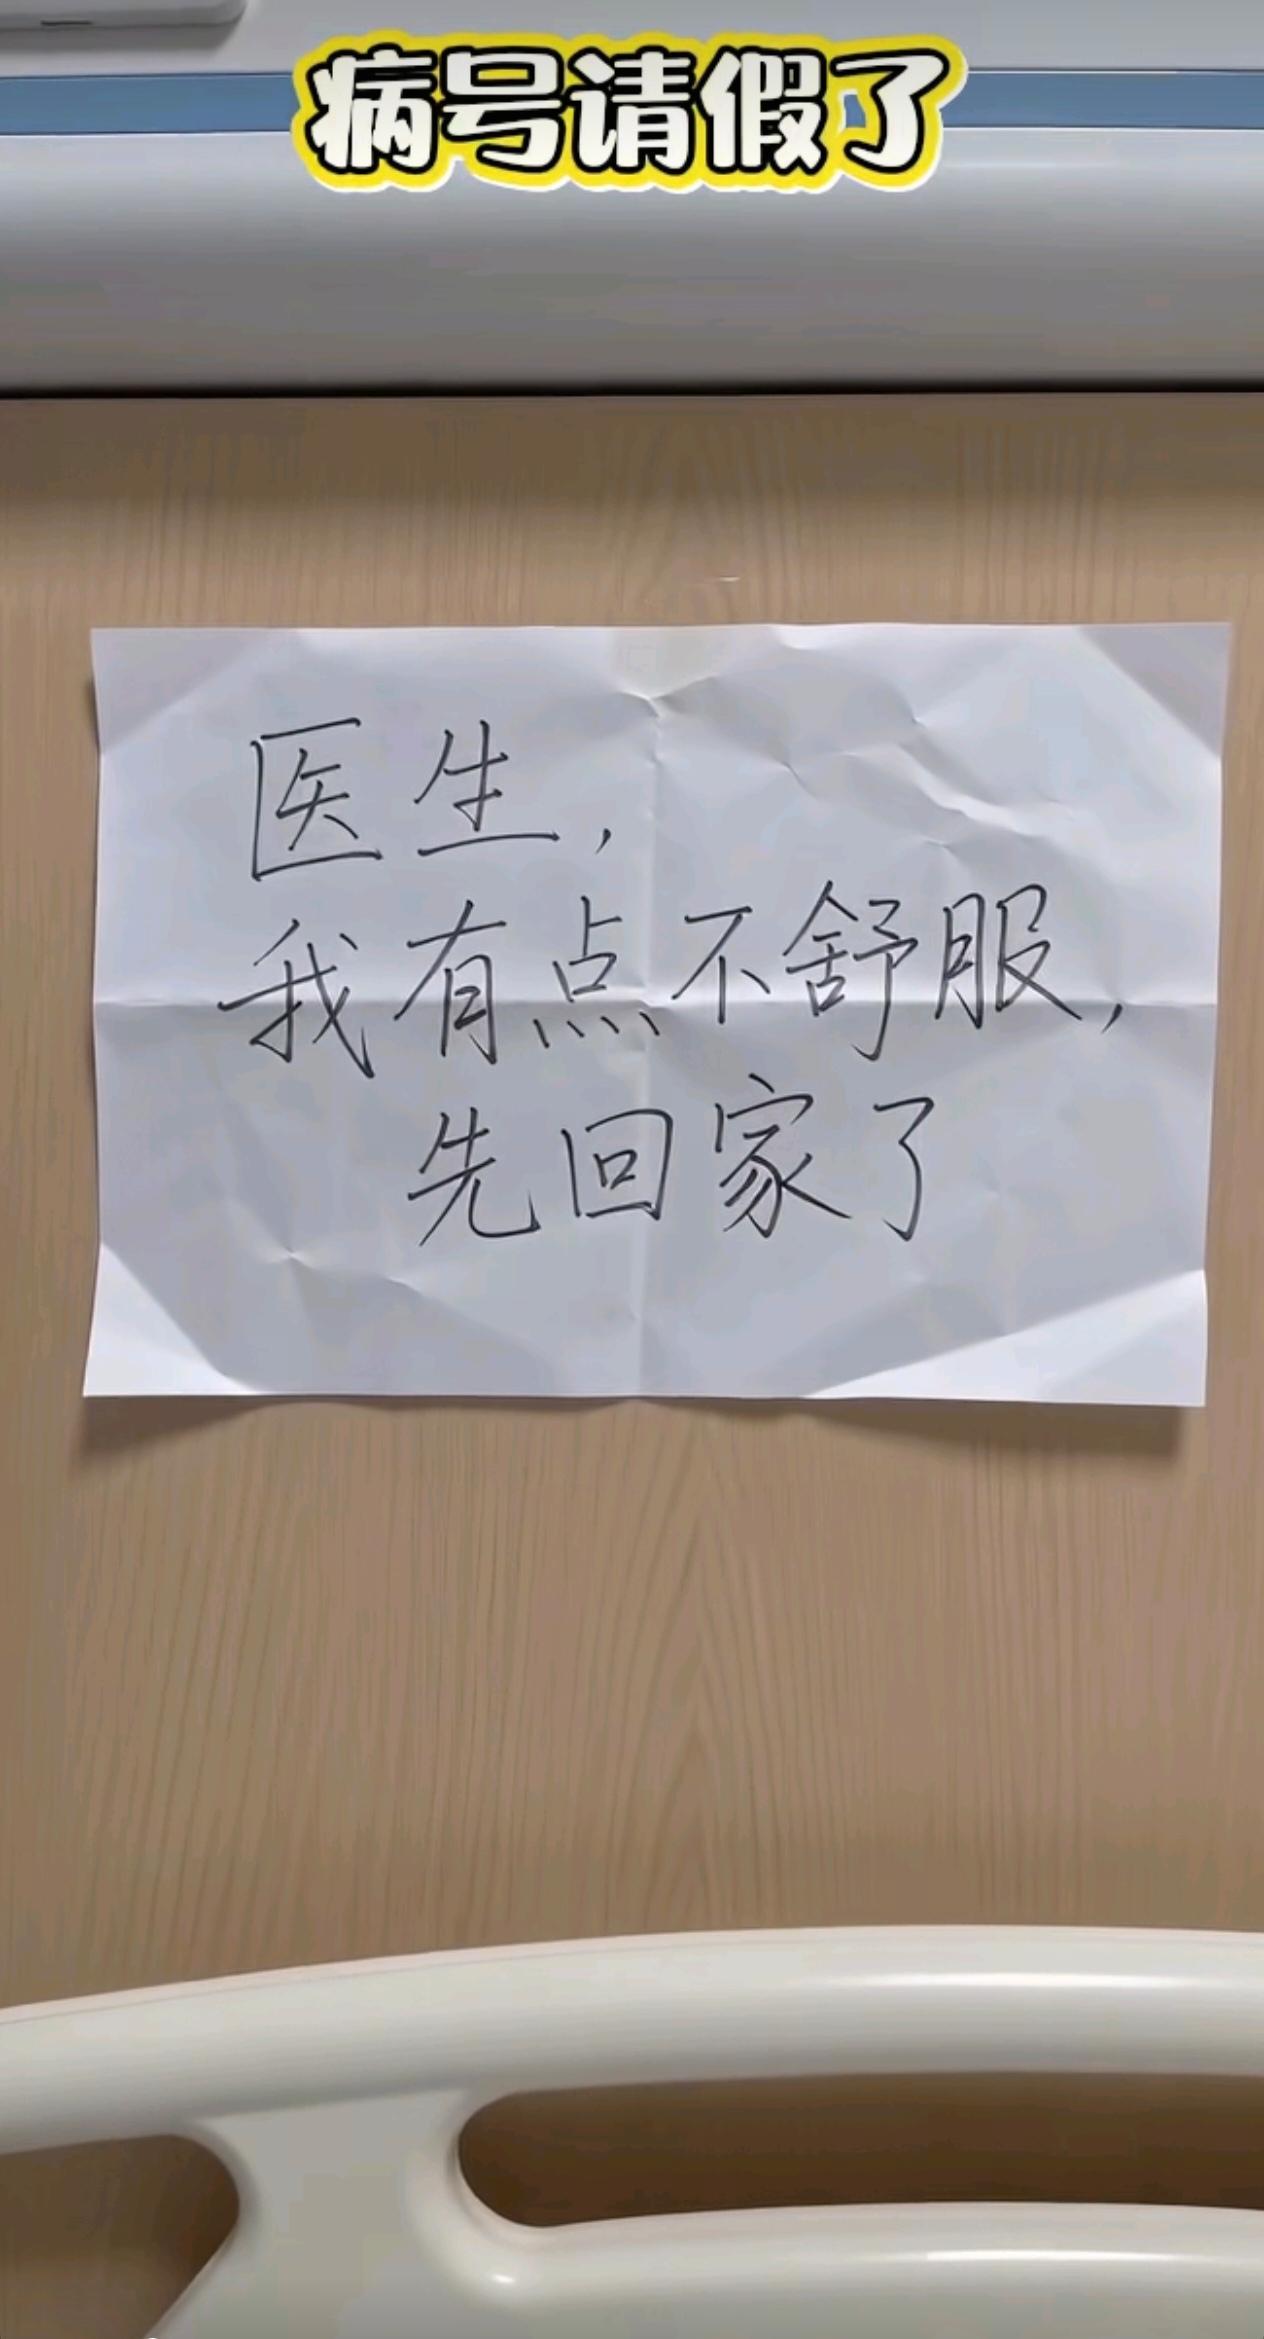 病号请假了
医生，
我有点不舒服，
先回家了